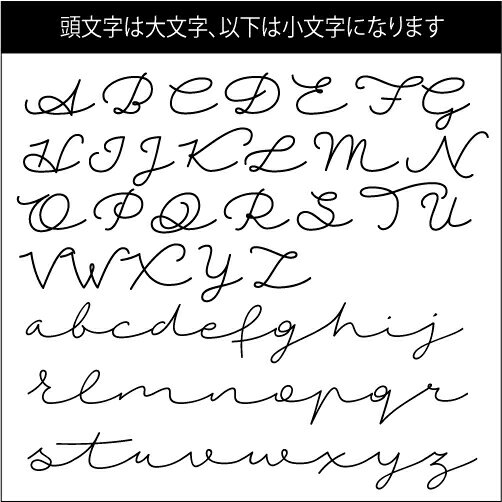 頭文字は大文字、以下は小文字になります
A B C D E F G
H I J K L M N
O P Q R S T U
V W X Y Z
a b c d e f g h i j
k l m n o p q r
s t u v w x y z